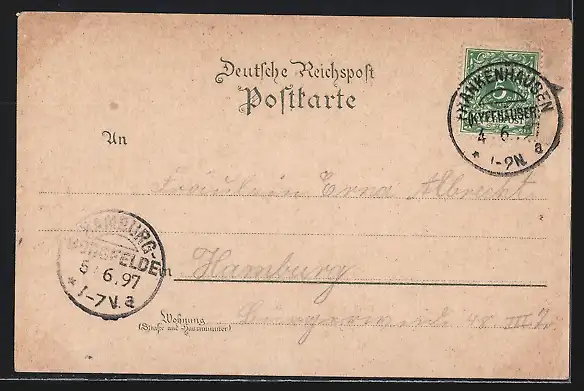 Deutsche Reichspost
Postkarte
FRANKENHAUSEN
(KYFFHÄUSER)
4 6
* 1-2N. a
5
An
Fräulein Erna Albrecht
HAMBURG-
BORGFELDE
5/6.97
* 1-7V. a
in Hamburg
Wohnung
(Straße und Hausnummer)
48 III